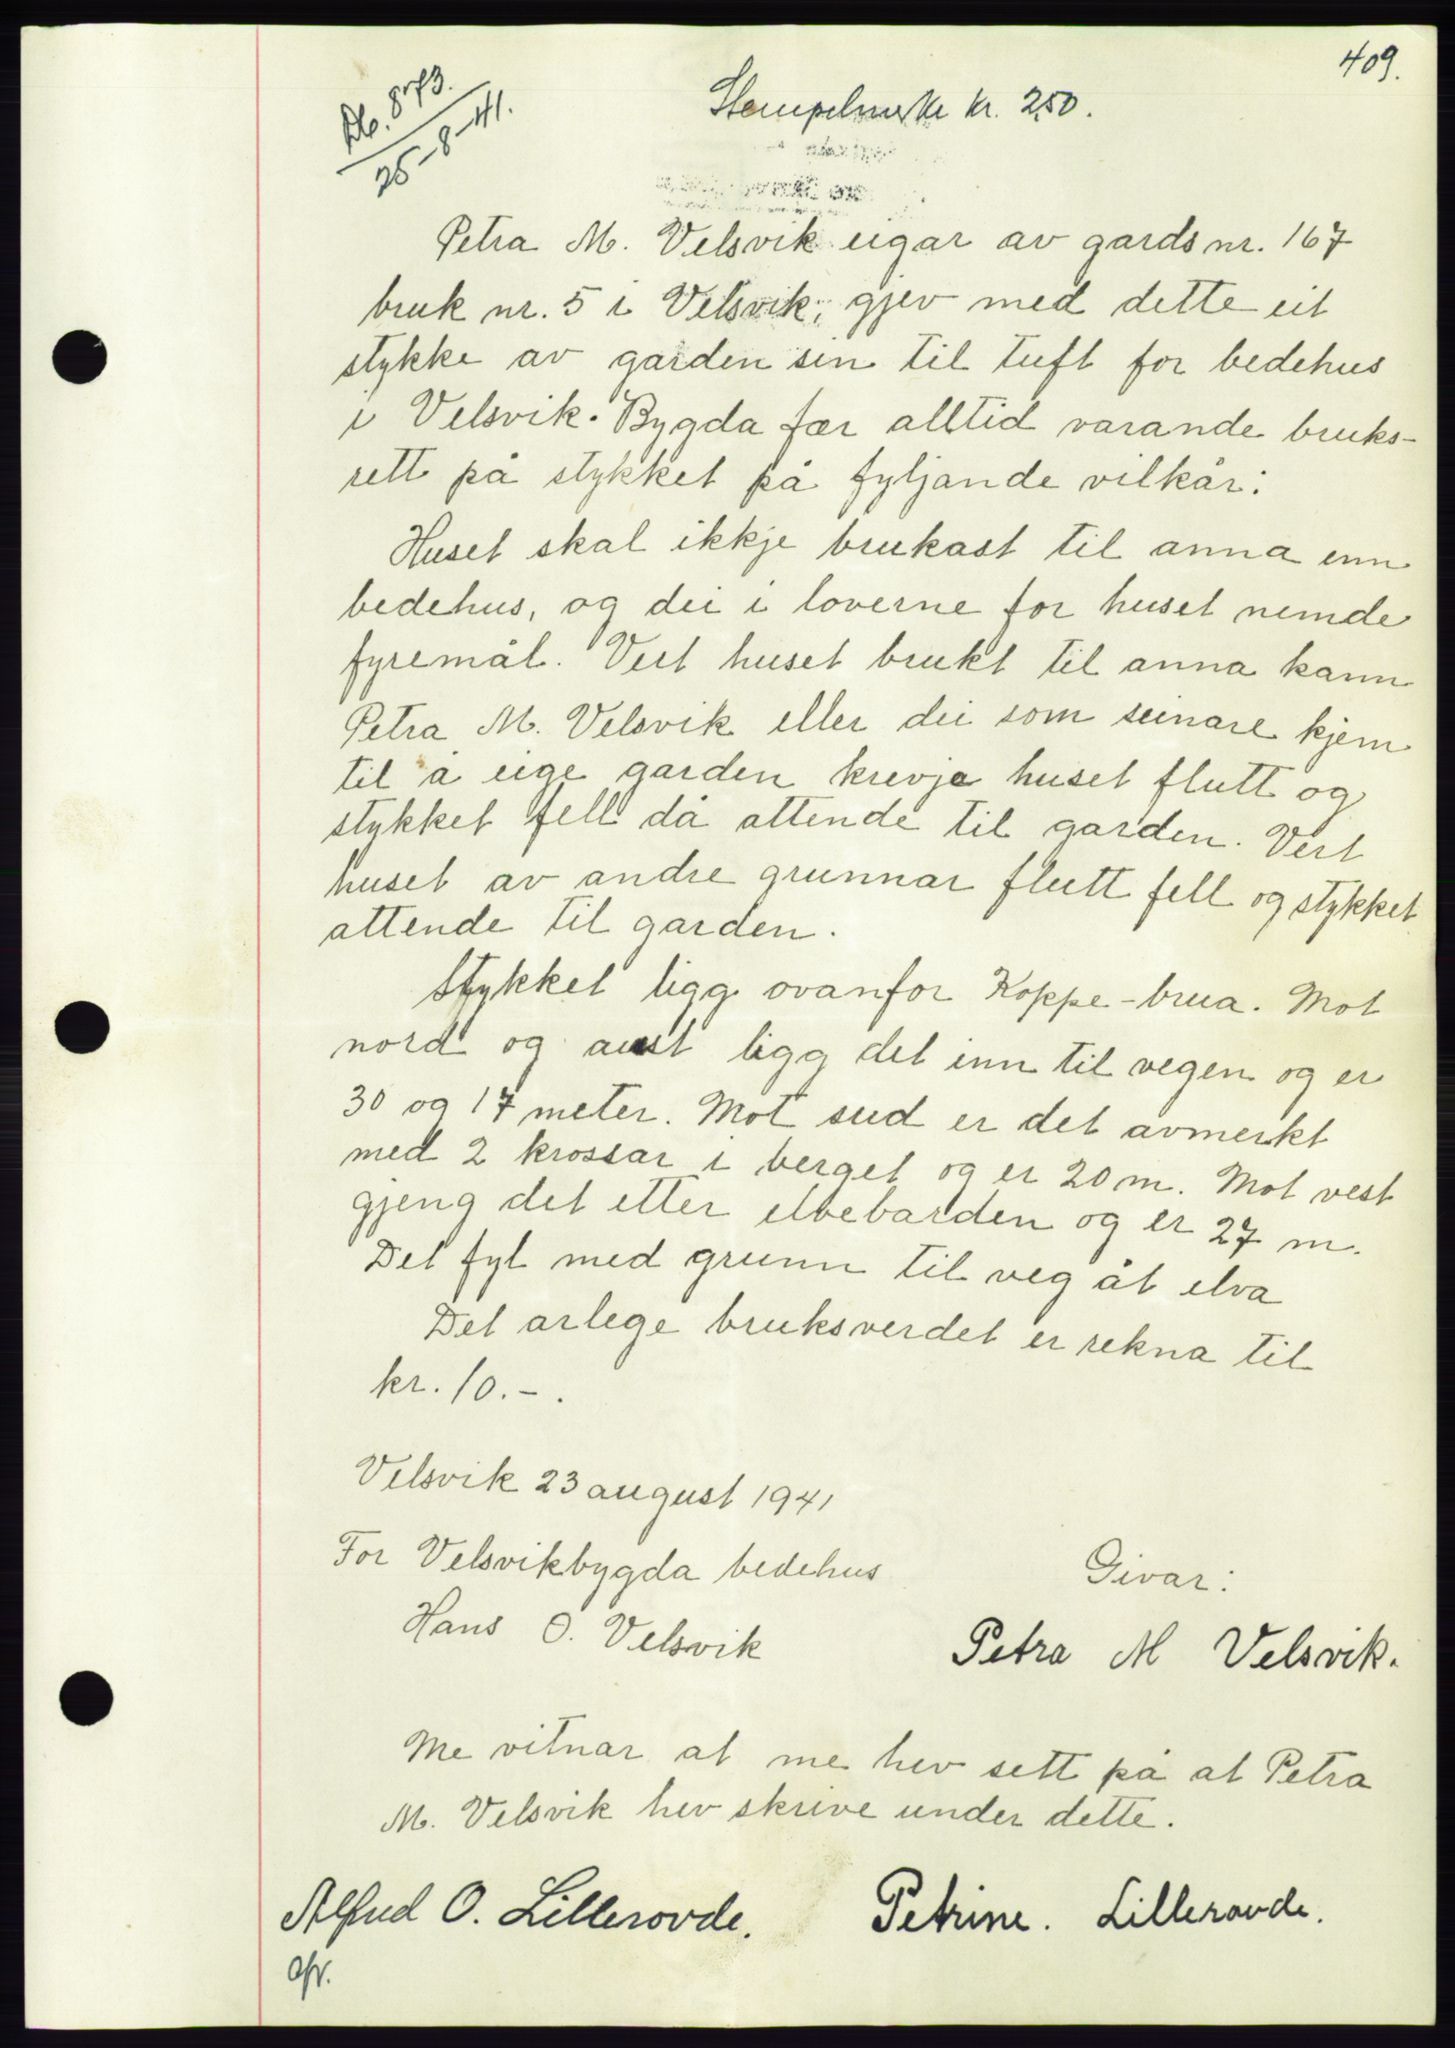 409.
Db. 873.
25-8-41.
Stempelmerke kr. 2.50.
Petra M. Velsvik eigar av gards nr. 167
bruk nr. 5 i Velsvik, gjev med dette eit
stykke av garden sin til tuft for bedehus
i Velsvik. Bygda fær alltid varande bruks-
rett på stykket på fyljande vilkår:
Huset skal ikkje brukast til anna enn
bedehus, og dei i loverne for huset nemde
fyremål. Vert huset brukt til anna kann
Petra M. Velsvik eller dei som seinare kjem
til å eige garden krevja huset flutt og
stykket fell då attende til garden. Vert
huset av andre grunnar flutt fell og stykket
attende til garden.
Stykket ligg ovanfor Koppe-brua. Mot
nord og aust ligg det inn til vegen og er
30 og 17 meter. Mot sud er det avmerkt
med 2 krossar i berget og er 20 m. Mot vest
gjeng det etter elvebarden og er 27 m.
Det fyl med grunn til veg åt elva
Det arlege bruksverdet er rekna til
kr. 10.-.
Velsvik 23 august 1941
For Velsvikbygda bedehus
Givar:
Hans O. Velsvik
Petra M Velsvik.
Me vitnar at me hev sett på at Petra
M. Velsvik hev skrive under dette.
Alfred O. Lillerovde. Petrine. Lillerovde.